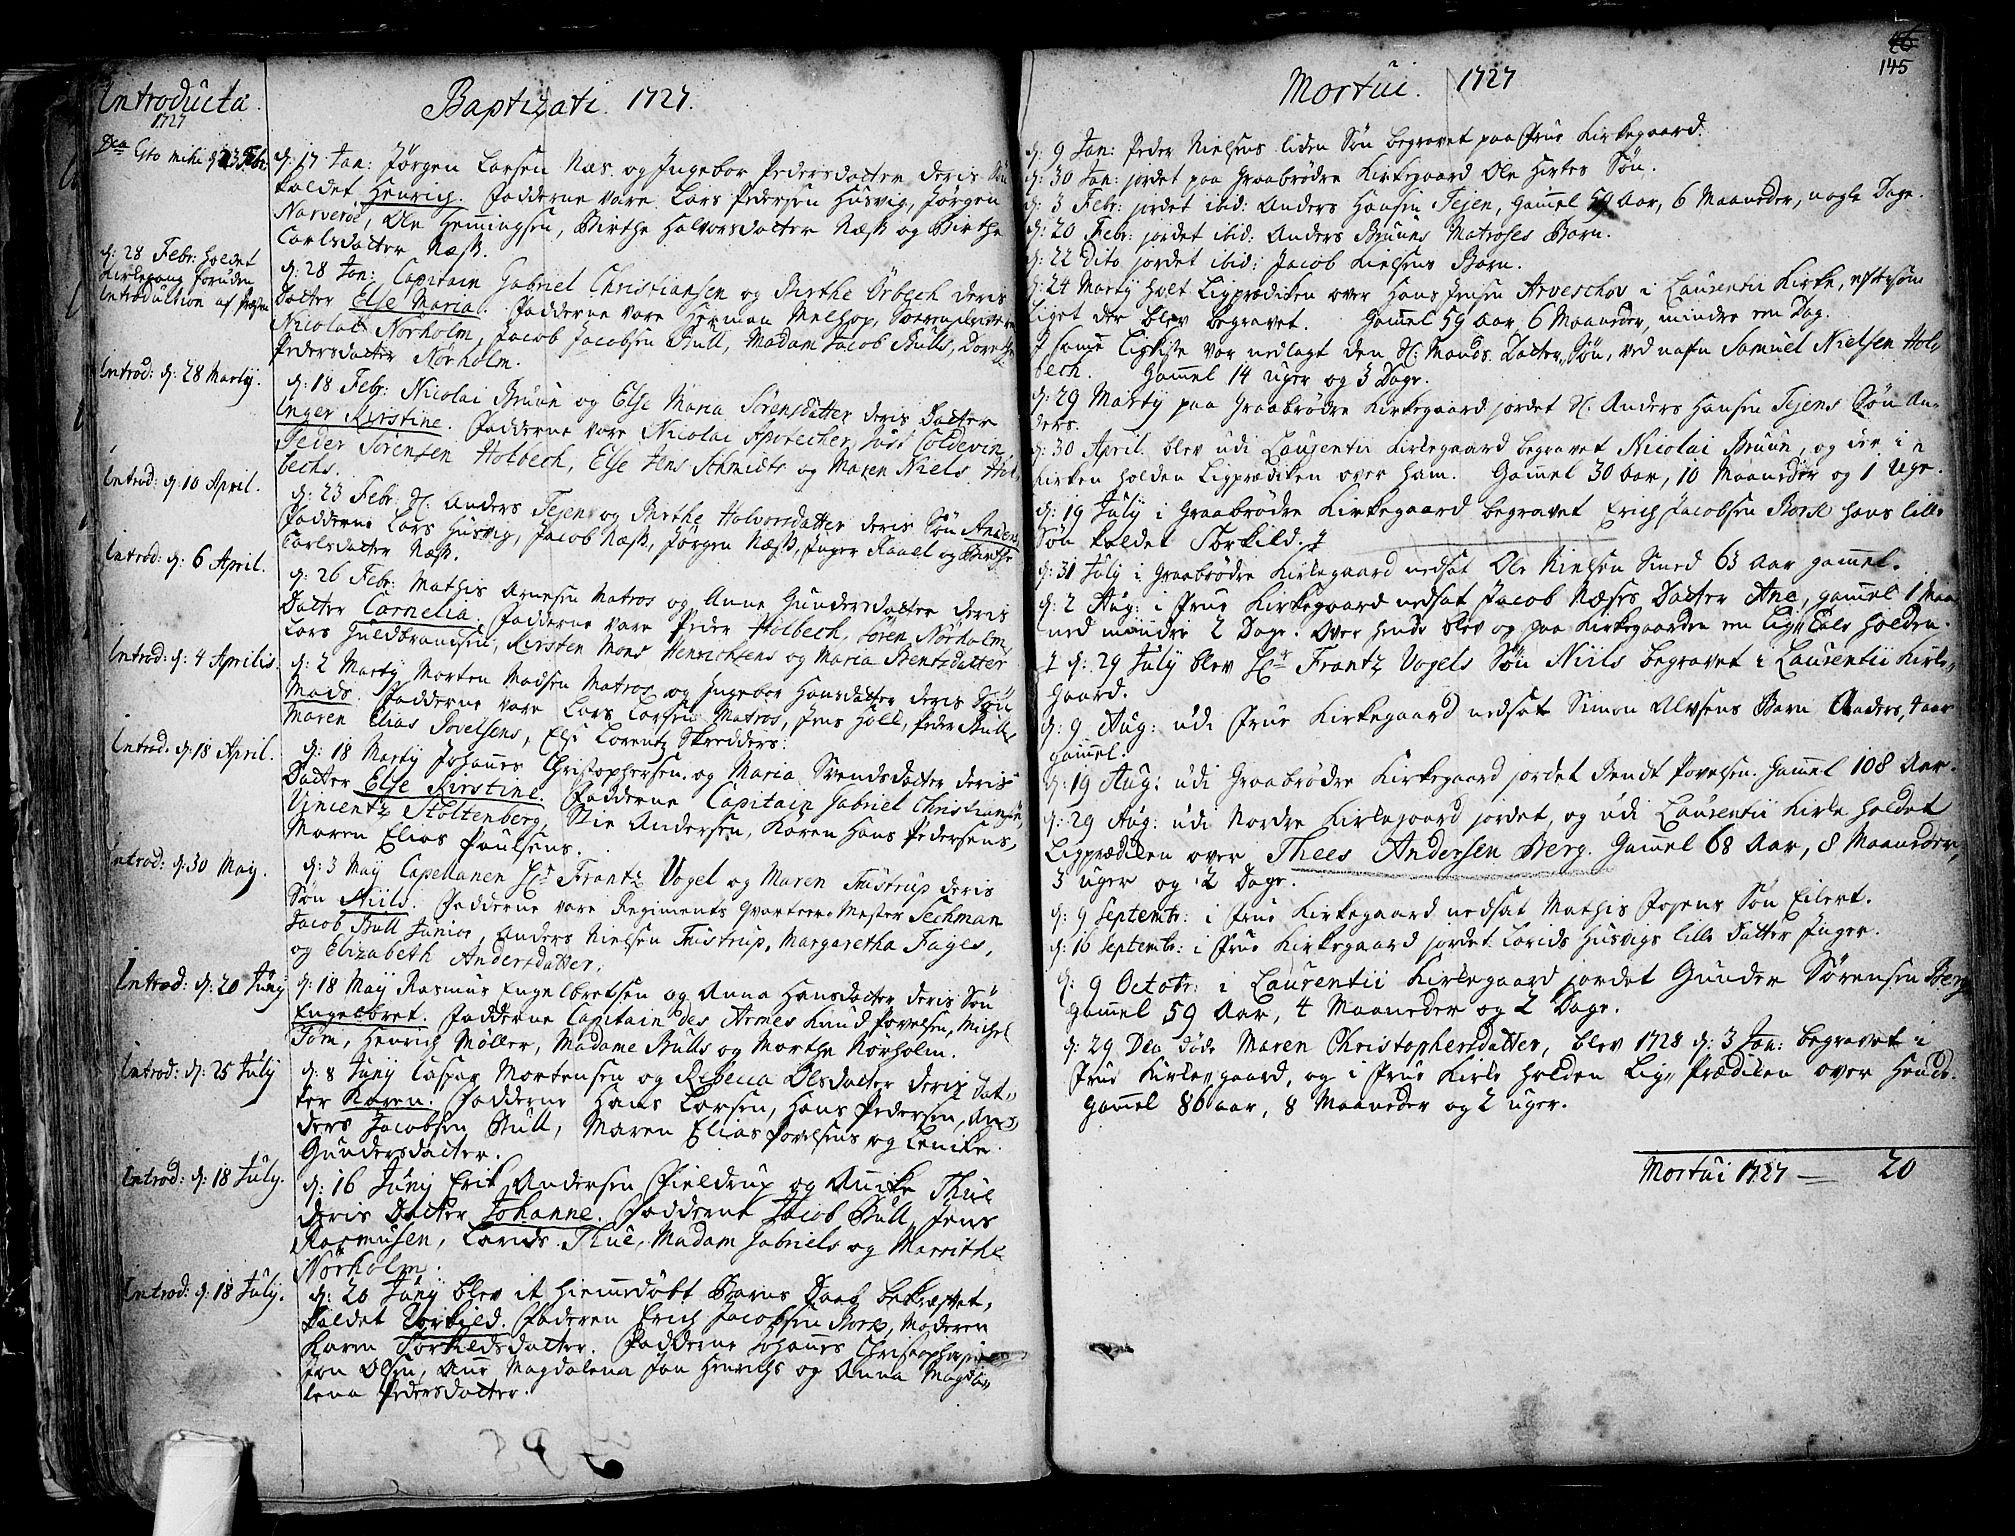 Introducta
1727
Dca Esto mihi d. 23 Febr.
d: 28 Febr: holdet
Kirkegang foruden
Introduction af Præsten
Introd: d: 28 Martij.
Introd: d: 10 April.
Introd: d: 6 April.
Introd: d: 4 Aprilis
Introd: d: 18 April.
Introd: d: 30 May.
Introd: d: 20 Junij
Introd: d: 25 July
Introd: d: 18 July.
Introd: d: 18 July.
Baptizati 1727.
d: 17 Jan: Jørgen Larsen Næs og Ingebor Pedersdatter deris Søn
kaldet Henrich. Fadderne vare Lars Pedersen Husvig, Jørgen
Narveröe, Ole Henningsen, Birthe Halvorsdatter Næss og Birthe
Carlsdatter Næss.
d: 28 Jan: Capitain Gabriel Christiansen og Birthe Örbech deris
Datter Else Maria. Fadderne vare Herman Melhop,
Nicolai Nörholm, Jacob Jacobsen Bull, Madam Jacob Bulls, Dorethe
Pedersdatter Norholm.
d: 18 Febr: Nicolai Bruun og Else Maria Sörensdatter deris Datter
Inger Kirstine. Fadderne vare Nicolai Apotecher, Just Coldevin
Peder Sörensen Holbech, Else Jens Schmidts og Maren Niels Hol-
bechs.
d: 23 Febr: S. Anders Tejens og Birthe Holvorsdatter deris Søn Anders
Fadderne Lars Husvig, Jacob Næss, Jørgen Næss, Inger Kaael og Birthe
Carlsdatter Næss.
d: 26 Febr: Mathis Arnesen Matros og Anne Gundersdatter deris
Datter Cornelia. Fadderne vare Peder Holbech, Sören Nörholm,
Lars Guldbrandsen, Kirsten Mons Henrichsens og Maria Bentsdatter
d: 2 Martij Morten Madsen Matros og Ingebor Hansdatter deris Søn
Mads. Fadderne vare Lars Larsen Matros, Jens Holl, Peder Bull
Maren Elias Povelsens, Else Lorentz Skredders.
d: 18 Martij Johannes Christophersen og Maria Svendsdatter deris
Datter Else Kirstine. Fadderne Capitain Gabriel Christiansen,
Vincentz Stoltenberg, Stie Andersen, Karen Hans Pedersens,
Maren Elias Paulsens.
d: 3 May Capellanen Hr Frantz Vogel og Maren Trustrup deris
Søn Niils. Fadderne vare Regiments Qvarteer-Mester Sechman
Jacob Bull Junior, Anders Nielsen Trustrup, Margaretha Fages,
og Elizabeth Andersdatter.
d: 18 Maij Rasmus Engelbretsen og Anna Hansdatter deris Søn
Engelbret. Fadderne Capitain des Armes Knud Povelsen, Michel
Töm, Henrich Möller, Madame Bulls og Marthe Nörholm.
d: 8 Junij Caspar Mortensen og Rebecca Olsdatter deris Dat-
ter Karen. Fadderne Hans Larsen, Hans Pedersen, An-
ders Jacobsen Bull, Maren Elias Povelsens og Lenike
Gundersdatter.
d: 16 Junij Erik Andersen Fieldrup og Anike Thue
deris Datter Johanne. Fadderne Jacob Bull, Jens
Rasmusen, Lorids Thue, Madam Gabriels og Marrithe
Nörholm.
d: 20 Junij blev it hiemedøbt Barns Daab bekræftet,
kaldet Torkild. Faderen Erich Jacobsen Borse, Moderen
Karen Torkildsdatter. Fadderne Johannes Christophersen
Jon Olsen, Ane Magdalena Jan Henrichs og Anna Magda-
lena Pedersdatter.
46
145
Mortui. 1727
d: 9 Jan: Peder Nielsens liden Søn begravet paa Frue Kirkegaard.
d: 30 Jan: jordet paa Graabrødre Kirkegaard Ole Hirtes Søn.
d: 3 Febr: jordet ibid: Anders Hansen Tejen, gamel 59 Aar, 6 Maaneder, nogle Dage.
d: 20 Febr: jordet ibid: Anders Bruuns Matroses Barn.
d: 22 dito jordet ibid: Jacob Nielsens Barn.
d: 24 Martij holt Ligprædiken over Hans Jensen Arveschov i Laurentii Kirke, eftersom
liget der blev begravet. Gamel 59 Aar 6 Maaneder, mindre een Dag.
I samme Ligkiste var nedlagt den S: Mands Datter-Søn, ved nafn Samuel Nielsen Hol-
bech. Gamel 14 uger og 3 Dage.
d: 29 Martij paa Graabrødre Kirkegaard jordet S: Anders Hansen Tejens Søn An-
ders.
d: 30 April blev udi Laurentii Kirkegaard begravet Nicolai Bruun, og der i
Kirken holden Ligprædiken over ham. Gamel 30 Aar, 10 Maaneder og 1 Uge.
d: 19 July i Graabrødre Kirkegaard begravet Erich Jacobsen Borse hans lille
Søn kaldet Torkild.
d: 31 July i Graabrødre Kirkegaard nedsat Ole Nielsen Smed 63 Aar gamel.
d: 2 Aug: i Frue Kirkegaard nedsat Jacob Næses Datter Ane, gamel 1 Maa-
ned mindre 2 Dage. Over hende blev og paa Kirkegaarden en Lig-Tale holden.
d: 29 July blev Hr Frantz Vogels Søn Niils begravet i Laurentii Kirke-
gaard.
d: 9 Aug: udi Frue Kirkegaard nedsat Simon Alvsens Barn Anders, 1 aar
gamel.
d: 19 Aug: udi Graabrødre Kirkegaard jordet Bendt Povelsen. Gamel 108 Aar.
d: 29 Aug: udi Nordre Kirkegaard jordet, og udi Laurentii Kirke holdet
Ligprædiken over Thees Andersen Berg. Gamel 68 Aar, 8 Maaneder,
3 uger og 2 Dage.
d: 9 Septembr: i Frue Kirkegaard nedsat Mathis Posens Søn Eilert.
d: 10 Septembr: i Frue Kirkegaard jordet Lorids Husvigs lille Datter Inger.
d: 9 Octobr: i Laurentii Kirkegaard jordet Gunder Sørensen Berg
Gamel 59 Aar, 4 Maaneder og 2 Dage.
d: 29 Dec døde Maren Christophersdatter, blev 1728 d: 3 Jan: begravet i
Frue Kirke-gaard, og i Frue Kirke holden Lig-Prædiken over Hende.
Gamel 86 aar, 8 Maaneder og 2 uger.
Mortui 1727 — 20